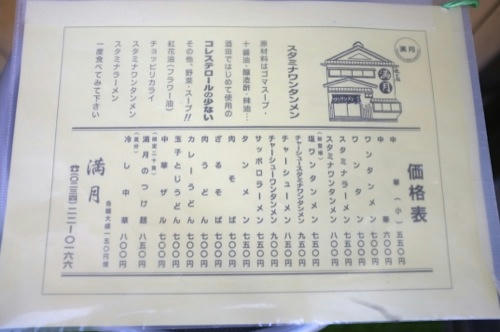 満月
満月
ワンタンメン
スタミナワンタンメン
原材料はゴマスープ・
十醤油・醸造酢・辣油…
酒田ではじめて使用の
コレステロールの少ない
その他、野菜・スープ!!
紅花油(フラワー油)
チョッピリカライ
スタミナワンタンメン
スタミナラーメン
一度食べてみて下さい
価格表
中華(小) 五五〇円
中華 六〇〇円
ワンタンメン 七〇〇円
ワンタン 五〇〇円
スタミナラーメン 七五〇円
スタミナワンタンメン 八〇〇円
塩ワンタンメン 七五〇円
チャーシュースタミナワンタンメン 九五〇円
チャーシューメン 八五〇円
チャーシューワンタンメン 九〇〇円
サッポロラーメン 七五〇円
タンメン 七〇〇円
肉そば 七〇〇円
ざるそば 七〇〇円
肉うどん 七〇〇円
カレーうどん 七五〇円
玉子とじうどん 七〇〇円
中華ザル 七〇〇円
満月のつけ麺 八五〇円
冷し中華 八〇〇円
各種大盛一五〇円増
満月
〇二三四-二二-〇一六六